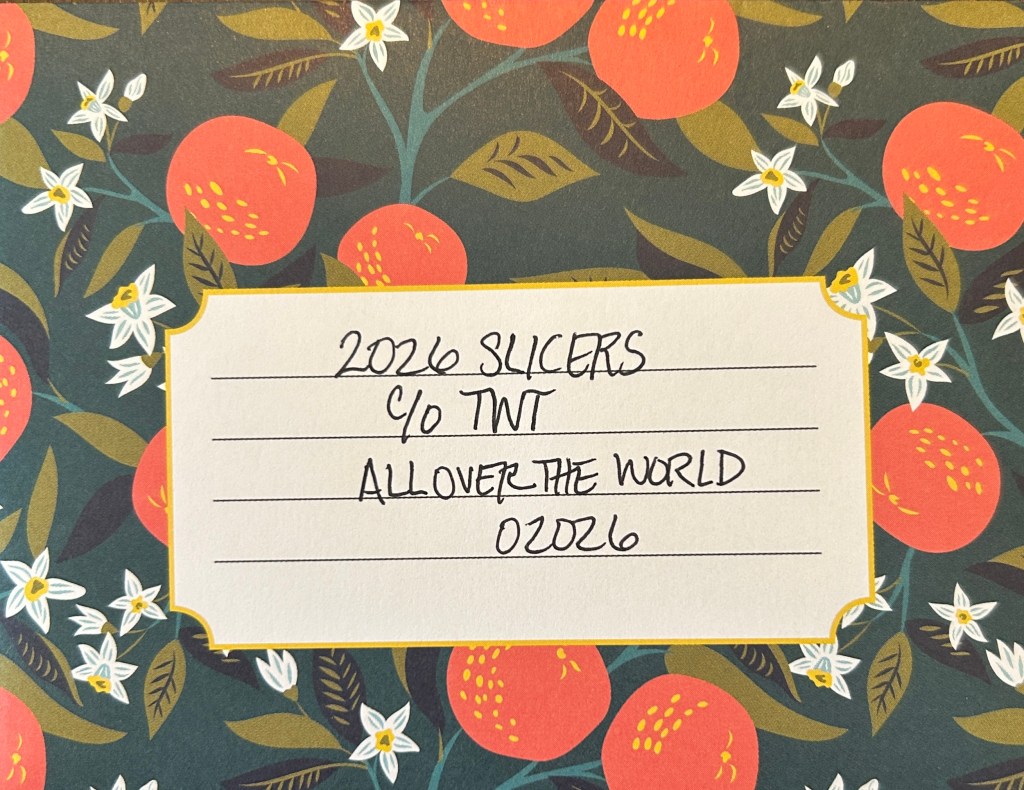 2026 SLICERS
c/o TWT
ALL OVER THE WORLD
02026